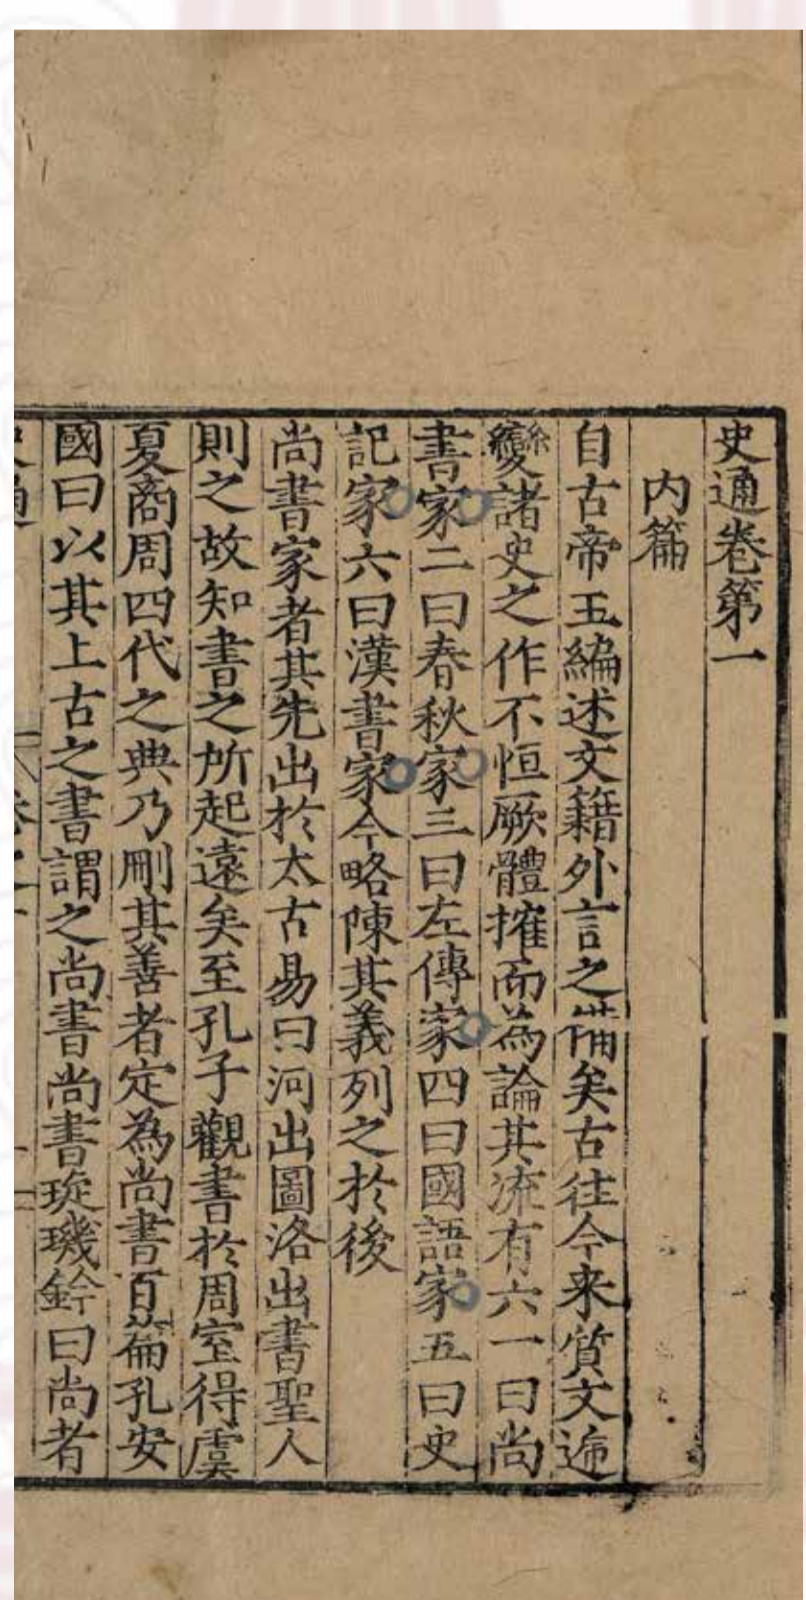 史通卷第一
内篇
自古帝王編述文籍外言之備矣古往今来質文遞
變諸史之作不恒厥體搉而為論其流有六一曰尚
書家二曰春秋家三曰左傳家四曰國語家五曰史
記家六曰漢書家今略陳其義列之於後
尚書家者其先出於太古易曰河出圖洛出書聖人
則之故知書之所起遠矣至孔子觀書於周室得虞
夏商周四代之典乃刪其善者定為尚書百篇孔安
國曰以其上古之書謂之尚書尚書琁璣鈐曰尚者